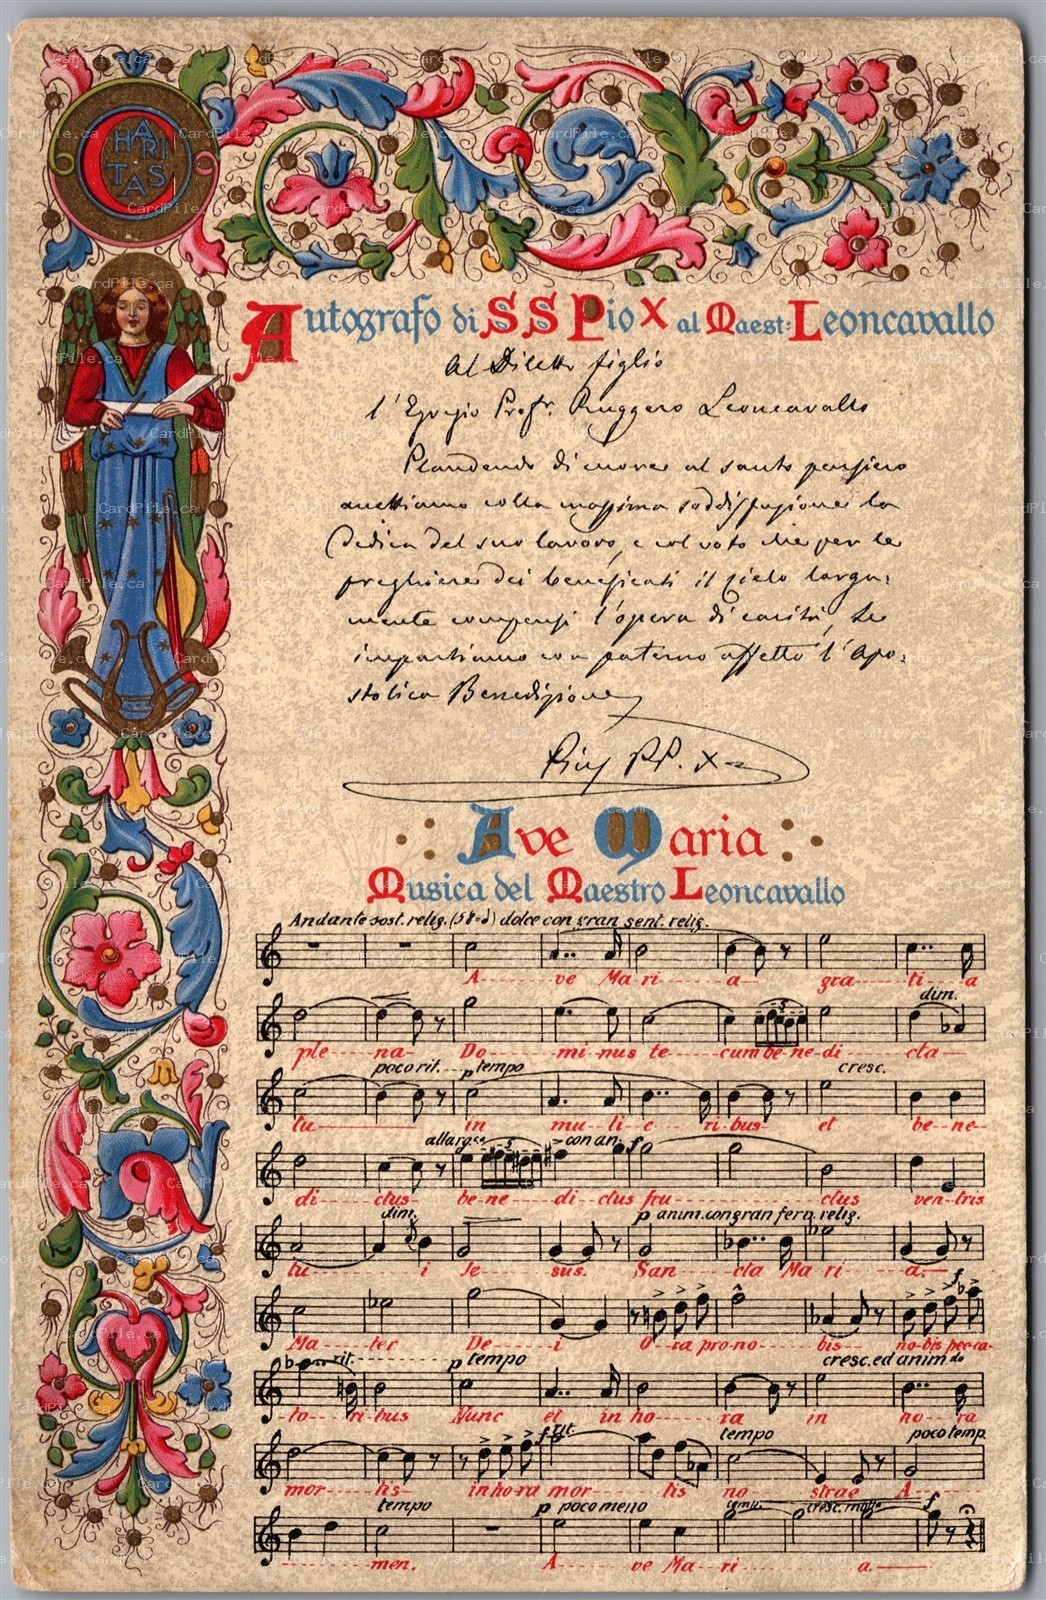 CARITAS
CHARITAS
Autografo di S S Pio X al Maest: Leoncavallo
Al Diletto figlio
l'Egregio Profr. Ruggero Leoncavallo
Plaudendo di cuore al santo pensiero
accettiamo colla massima soddisfazione la
Dedica del suo lavoro, e col voto che per le
preghiere dei beneficati il Cielo larga:
mente compensi l'opera di carità, Le
impartiamo con paterno affetto l'Apo:
stolica Benedizione
Pius PP. X
Ave Maria
Musica del Maestro Leoncavallo
Andante sost. relig. (58=) dolce con gran sent. relig.
A----ve Ma-ri---a----gra---ti---a
dim.
ple---na-- Do---mi-nus te----cum be-ne-di---cta—
poco rit.... p tempo cresc.
tu—in---mu--li-e---ri-bus---et---be-ne-
allarg. 5 con an. f
di---ctus---be-ne---di-ctus fru-----ctus---ven-tris
dim. p anim. con gran ferv. relig.
tu----i Je----sus. San---cta Ma-ri---a.—
f
Ma---ter De---i O-ra pro-no---bis---no-bis pec-ca-
rit.------- p tempo cresc. ed anim.do
to--ri-bus Nunc et in ho---ra---in---no--ra
f rit. tempo poco temp.
mor---tis---in ho-ra mor---tis---no---strae A----
tempo p poco meno cresc. molto f
----men. A----ve Ma--ri---a.—
CardPile.ca